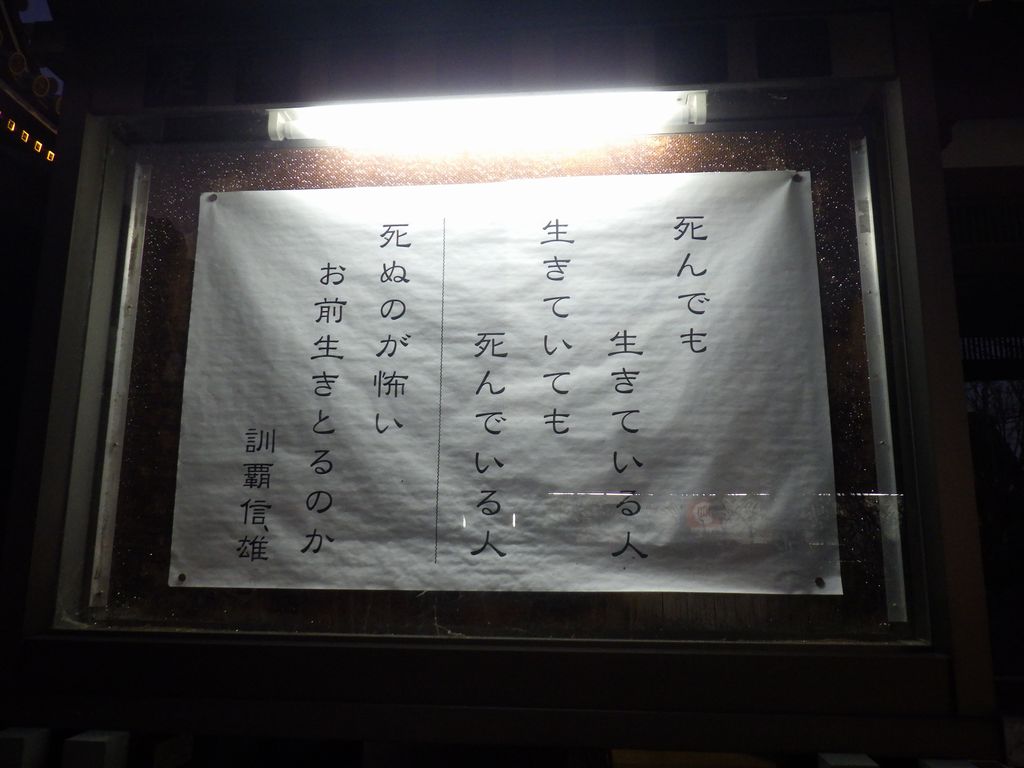 死んでも
生きている人
生きていても
死んでいる人
死ぬのが怖い
お前生きとるのか
訓覇信雄